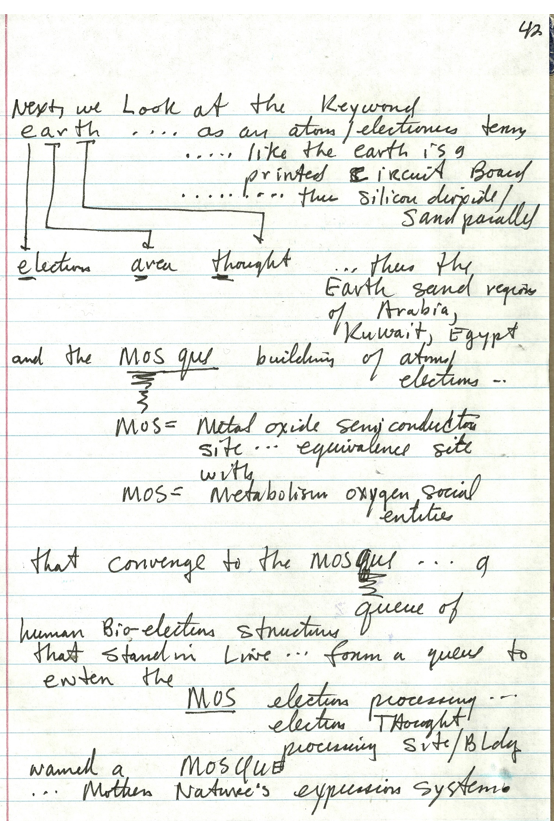 42
Next, we Look at the Keyword
earth .... as an atoms/electronics term,
..... like the earth is a
printed circuit Board
........... thus silicon dioxide/
Sand parallel
electrons area thought ... thus the
Earth sand regions
of Arabia,
Kuwait, Egypt
and the MOS que building of atoms/
electrons ...
MOS = Metal oxide semiconductor
site ... equivalence site
with
MOS = Metabolism oxygen social
entities
that converge to the MOSque ... a
queue of
human Bio-electron structures
that stand in Line ... form a queue to
enter the
MOS electron processing ...
electron THought
processing Site/Bldg
named a MOSQUE
... Mother Nature's expression systems